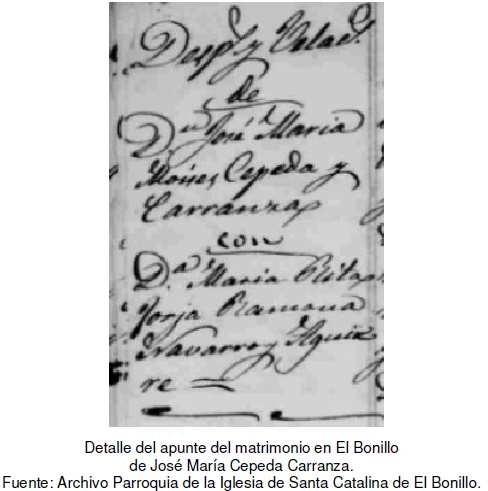 Desp.s y Velac.s
de
D.n José Maria
Moises Cepeda y
Carranza
con
D.a Maria Rita
Jorja Ramona
Navarro y Aguir
re
Detalle del apunte del matrimonio en El Bonillo
de José María Cepeda Carranza.
Fuente: Archivo Parroquia de la Iglesia de Santa Catalina de El Bonillo.